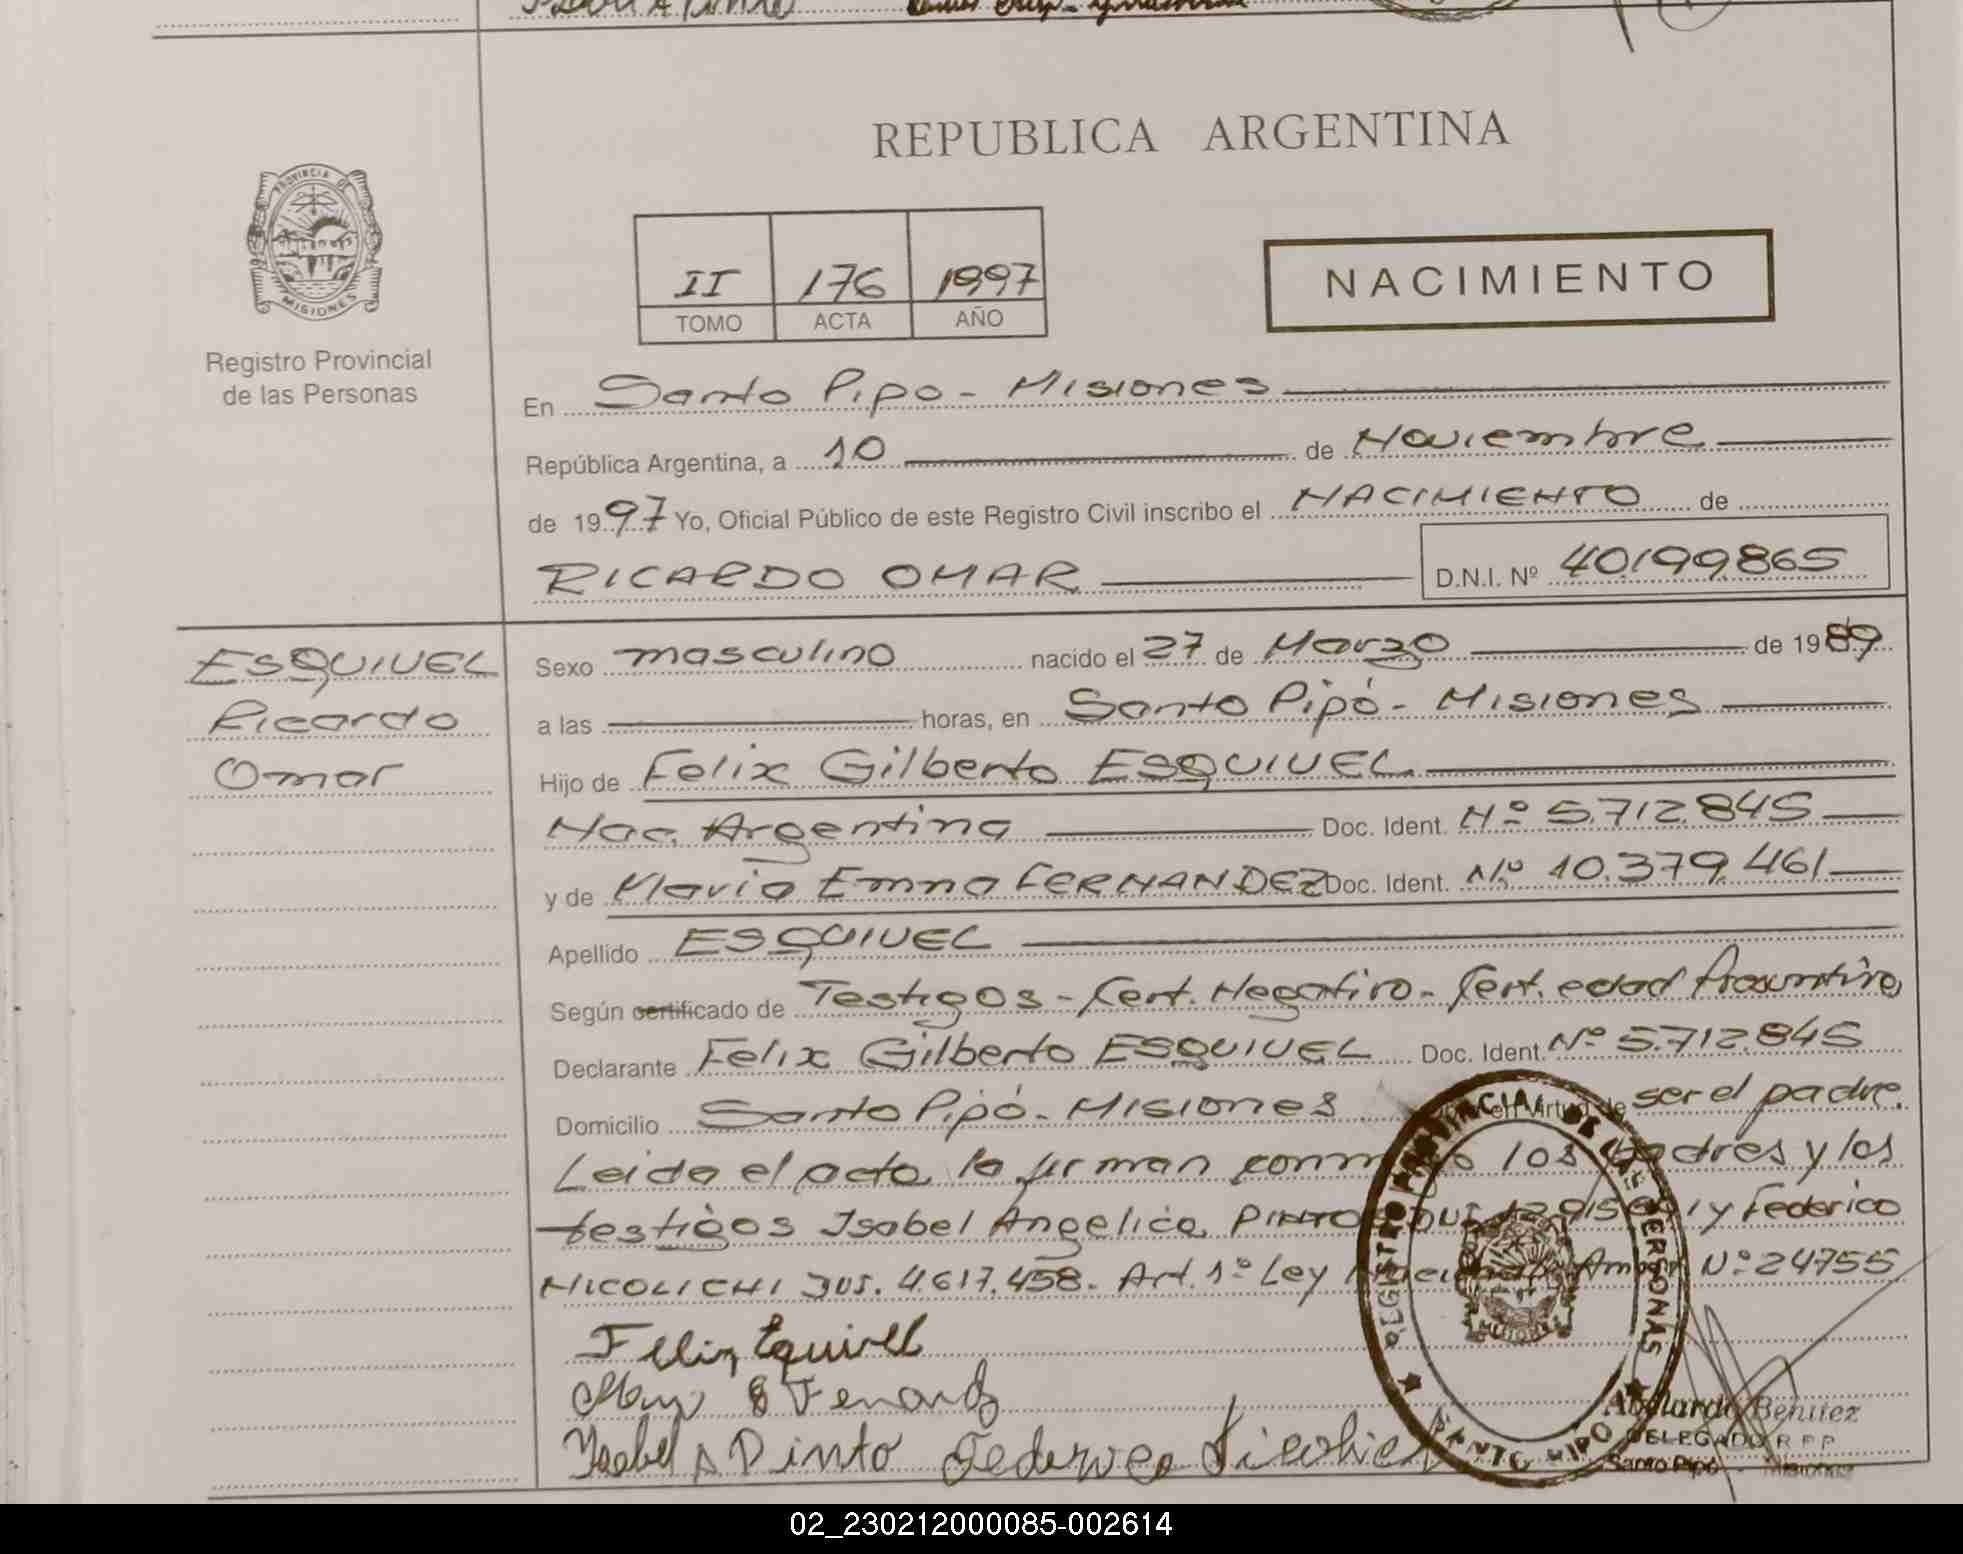 REPUBLICA ARGENTINA
PROVINCIA DE
MISIONES
Registro Provincial
de las Personas
II 176 1997
TOMO ACTA AÑO
NACIMIENTO
En Santo Pipo - Misiones
República Argentina, a 10 de Noviembre
de 1997 Yo, Oficial Público de este Registro Civil inscribo el NACIMIENTO de
RICARDO OMAR D.N.I. Nº 40.199.865
ESQUIVEL
Ricardo
Omar
Sexo masculino nacido el 27 de Marzo de 1989
a las horas, en Santo Pipó - Misiones
Hijo de Felix Gilberto ESQUIVEL
Nac. Argentina Doc. Ident. Nº 5.712.845
y de Maria Emma FERNANDEZ Doc. Ident. Nº 10.379.461
Apellido ESQUIVEL
Según certificado de Testigos - Cert. Negativo - Cert. edad
Declarante Felix Gilberto ESQUIVEL Doc. Ident. Nº 5.712.845
Domicilio Santo Pipó - Misiones en virtud de ser el padre.
Leida el acta la firman conmigo los padres y los
testigos Isabel Angelica PINTO y Federico
NICOLICHI 4.617.458. Art. 1º Ley Nº 24755
Felix Equivel
Fenandz
Isabel A Pinto
REGISTRO PROVINCIAL DE LAS PERSONAS
MISIONES
SANTO PIPO
Abelardo Benitez
DELEGADO R P P
Santo Pipó - Misiones
02_230212000085-002614